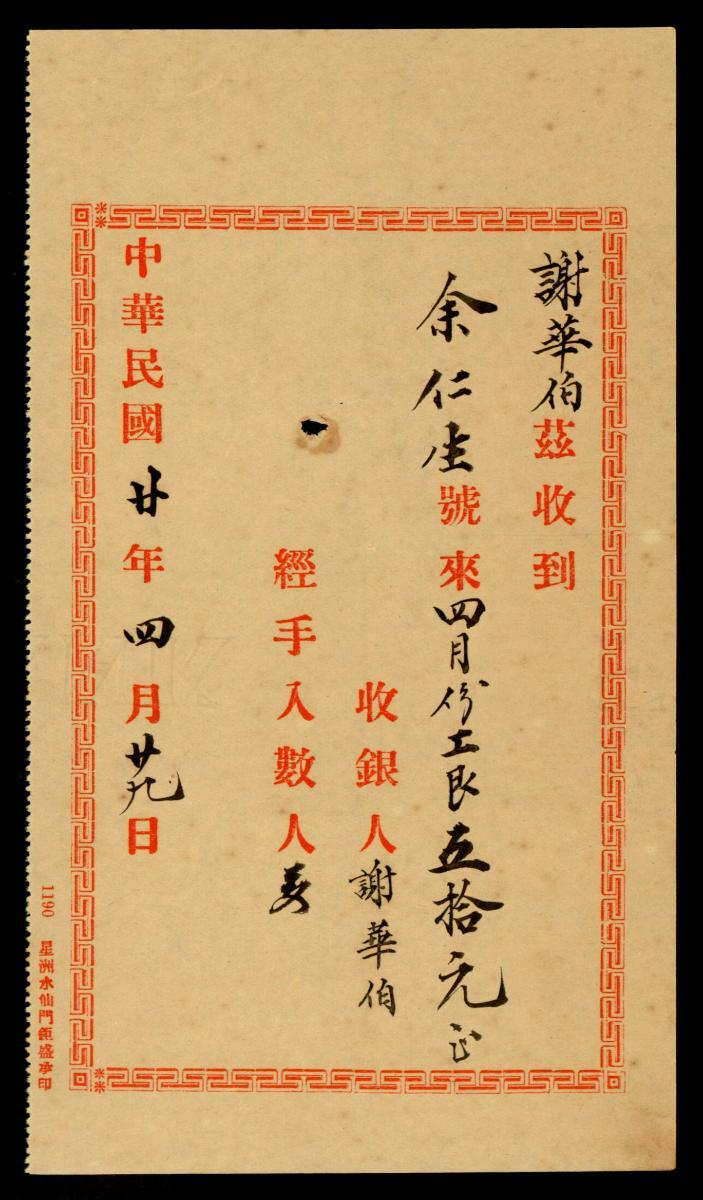 謝華伯茲收到
余仁生號來四月份工艮五拾元正
收銀人謝華伯
經手入數人
中華民國廿年四月廿九日
1190 星洲水仙門鉅盛承印